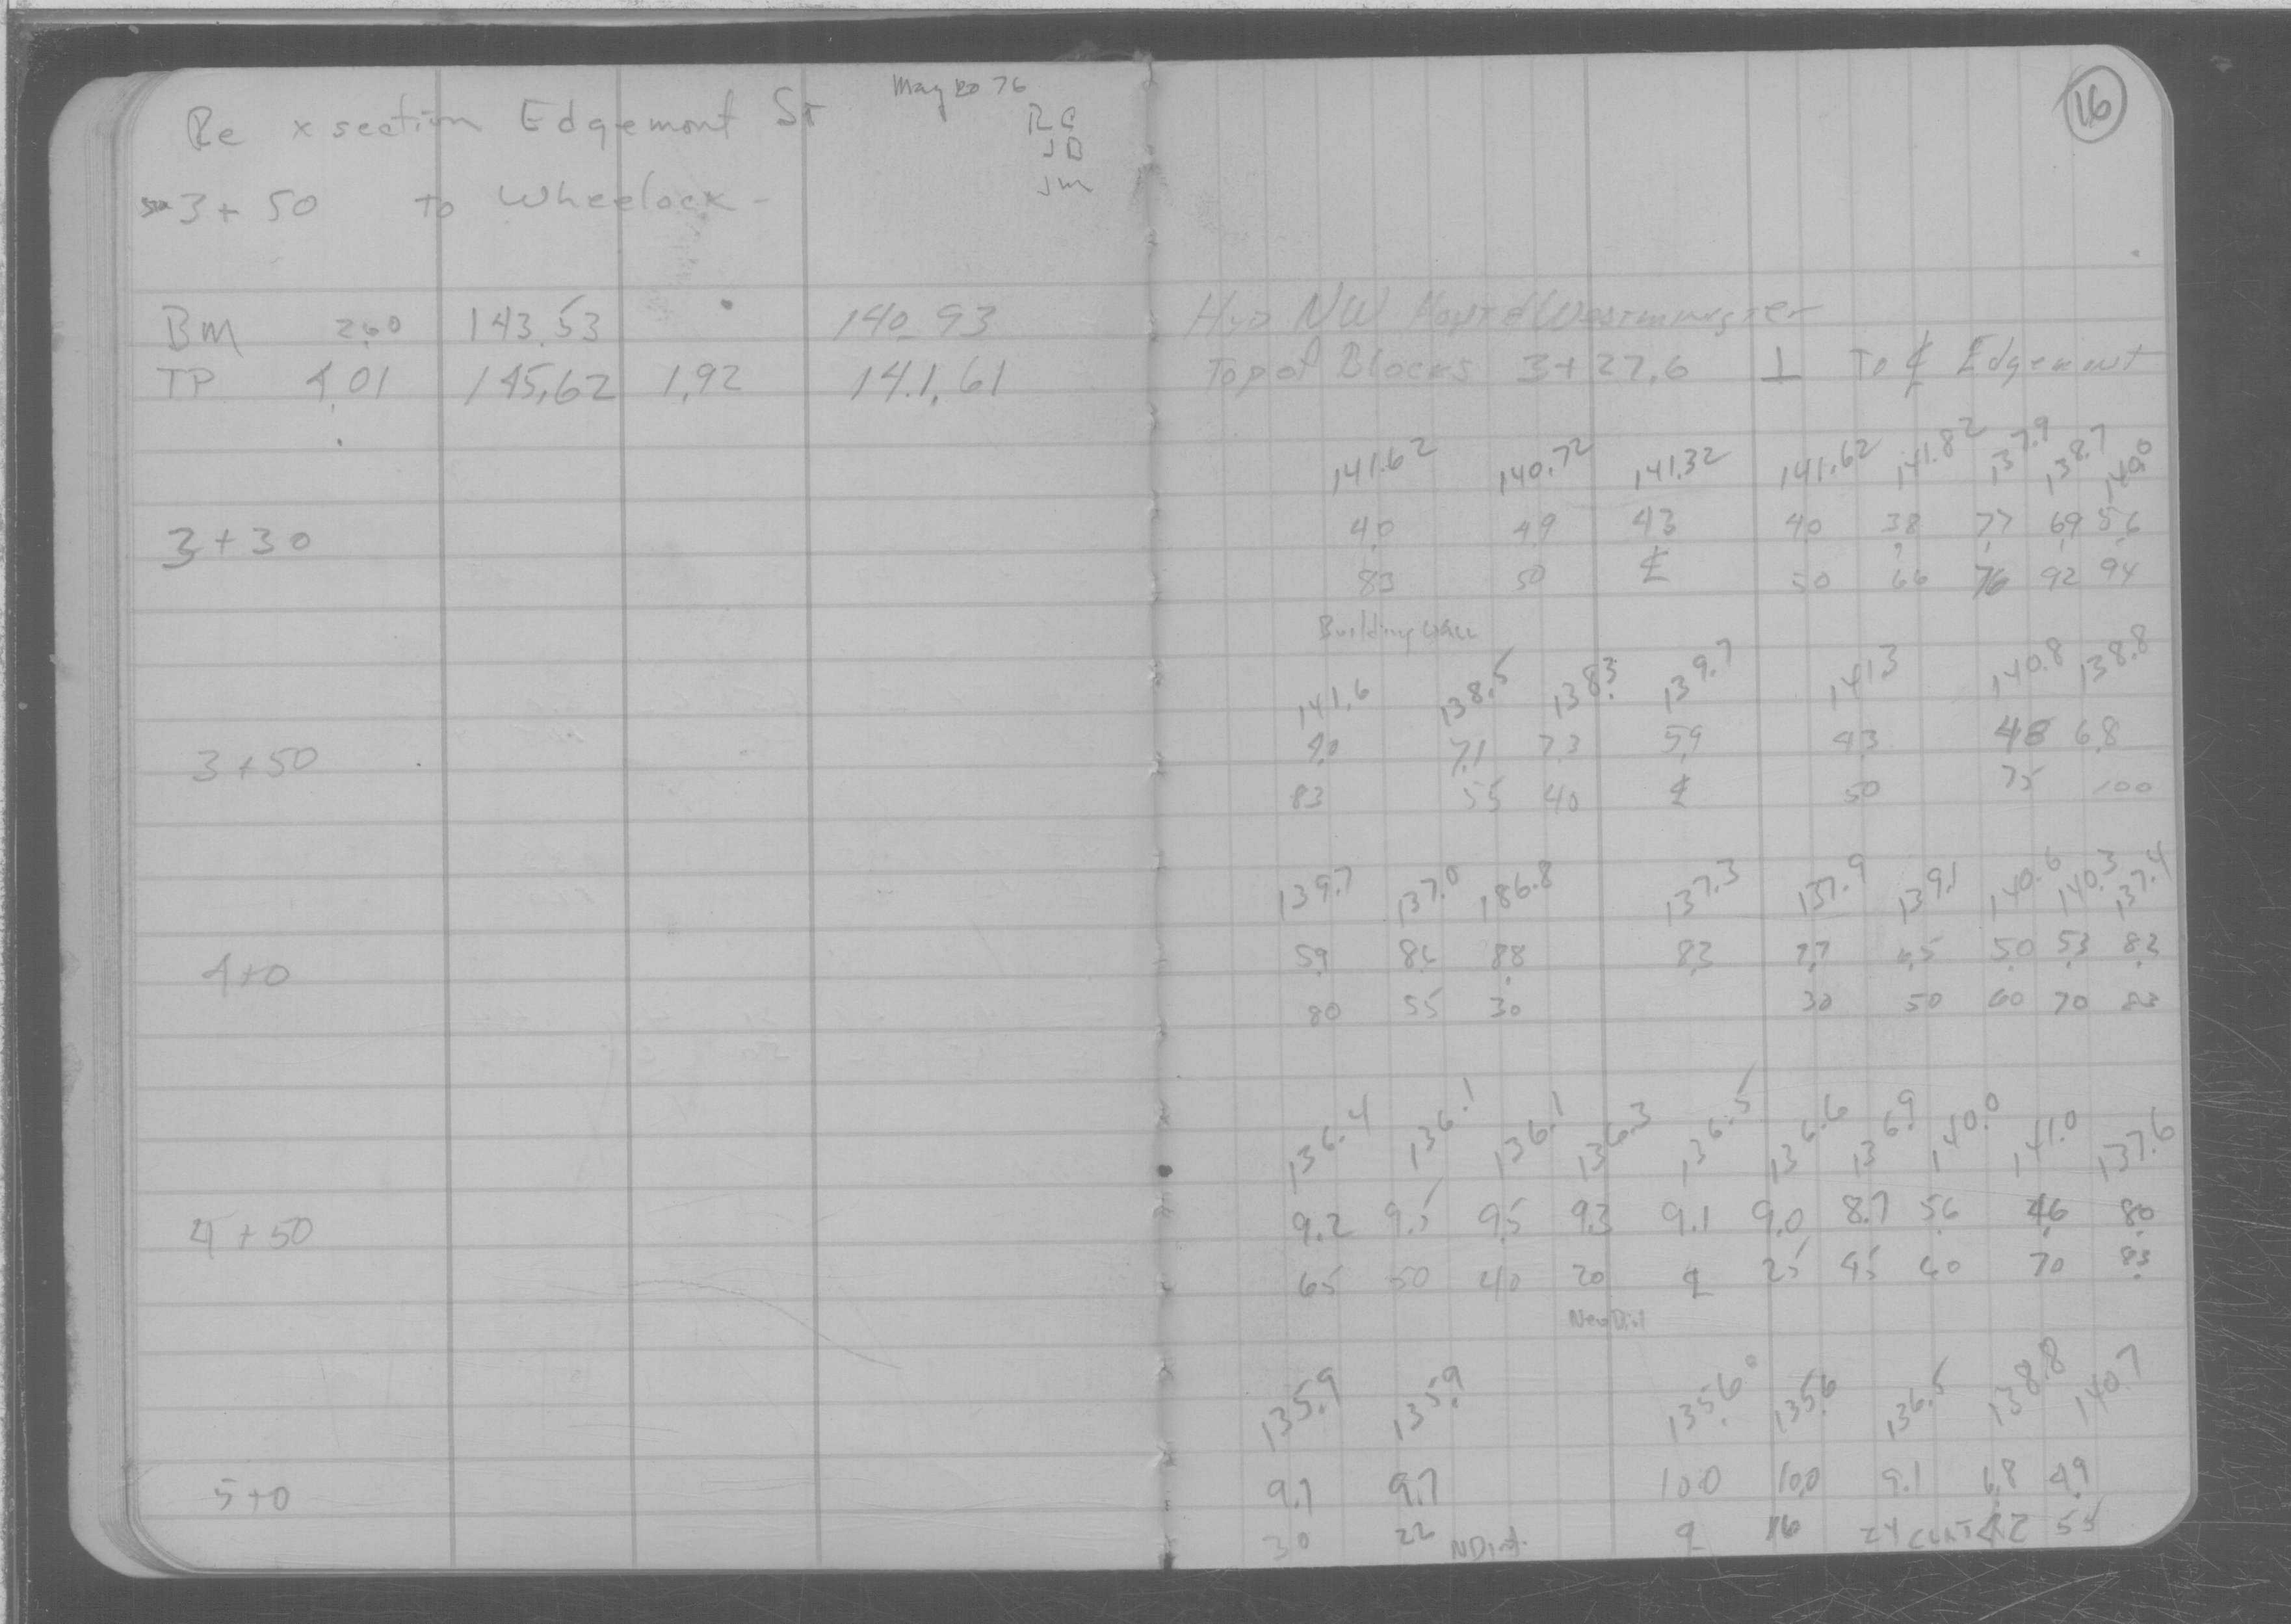 May 20 76
Re x section Edgemont St
RC
JD
Jm
3+50 to Wheelock -
16
Bm 2.60 143.53 140.93 Hyd NW Hoyt & Westminster
TP 4.01 145.62 1.92 141.61 Top of Blocks 3+27.6 ⊥ To ℄ Edgemont
141.62 140.72 141.32 141.62 141.82 137.9 138.7 140.0
3+30 4.0 4.9 4.3 4.0 3.8 7.7 6.9 5.6
83 50 ℄ 50 66 76 92 94
Building Wall
141.6 138.5 138.3 139.7 141.3 140.8 138.8
3+50 4.0 7.1 7.3 5.9 4.3 4.8 6.8
83 55 40 ℄ 50 75 100
139.7 137.0 136.8 137.3 137.9 139.1 140.6 140.3 137.4
4+0 5.9 8.6 8.8 8.3 7.7 6.5 5.0 5.3 8.2
80 55 30 30 50 60 70 83
136.4 136.1 136.1 136.3 136.5 136.6 136.9 140.0 141.0 137.6
4+50 9.2 9.5 9.5 9.3 9.1 9.0 8.7 5.6 4.6 8.0
65 50 40 20 ℄ 25 45 60 70 83
New Dirt
135.9 135.9 135.6 135.6 136.5 138.8 140.7
5+0 9.7 9.7 10.0 10.0 9.1 6.8 4.9
30 22 N Dirt ℄ 16 24 42 55